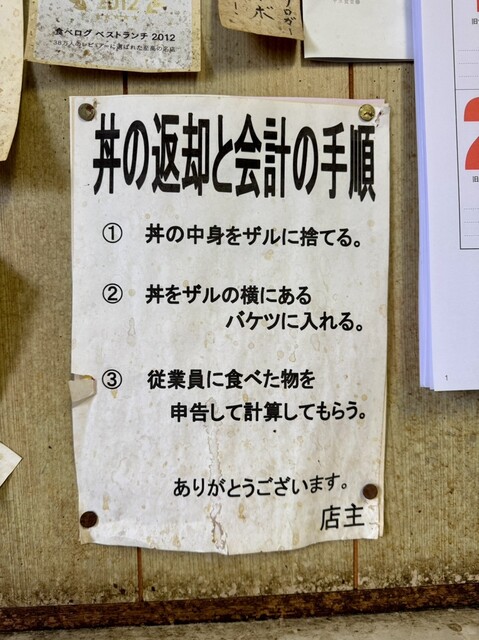 2012
食べログ ベストランチ 2012
ボ
丼の返却と会計の手順
① 丼の中身をザルに捨てる。
② 丼をザルの横にある
バケツに入れる。
③ 従業員に食べた物を
申告して計算してもらう。
ありがとうございます。
店主
1